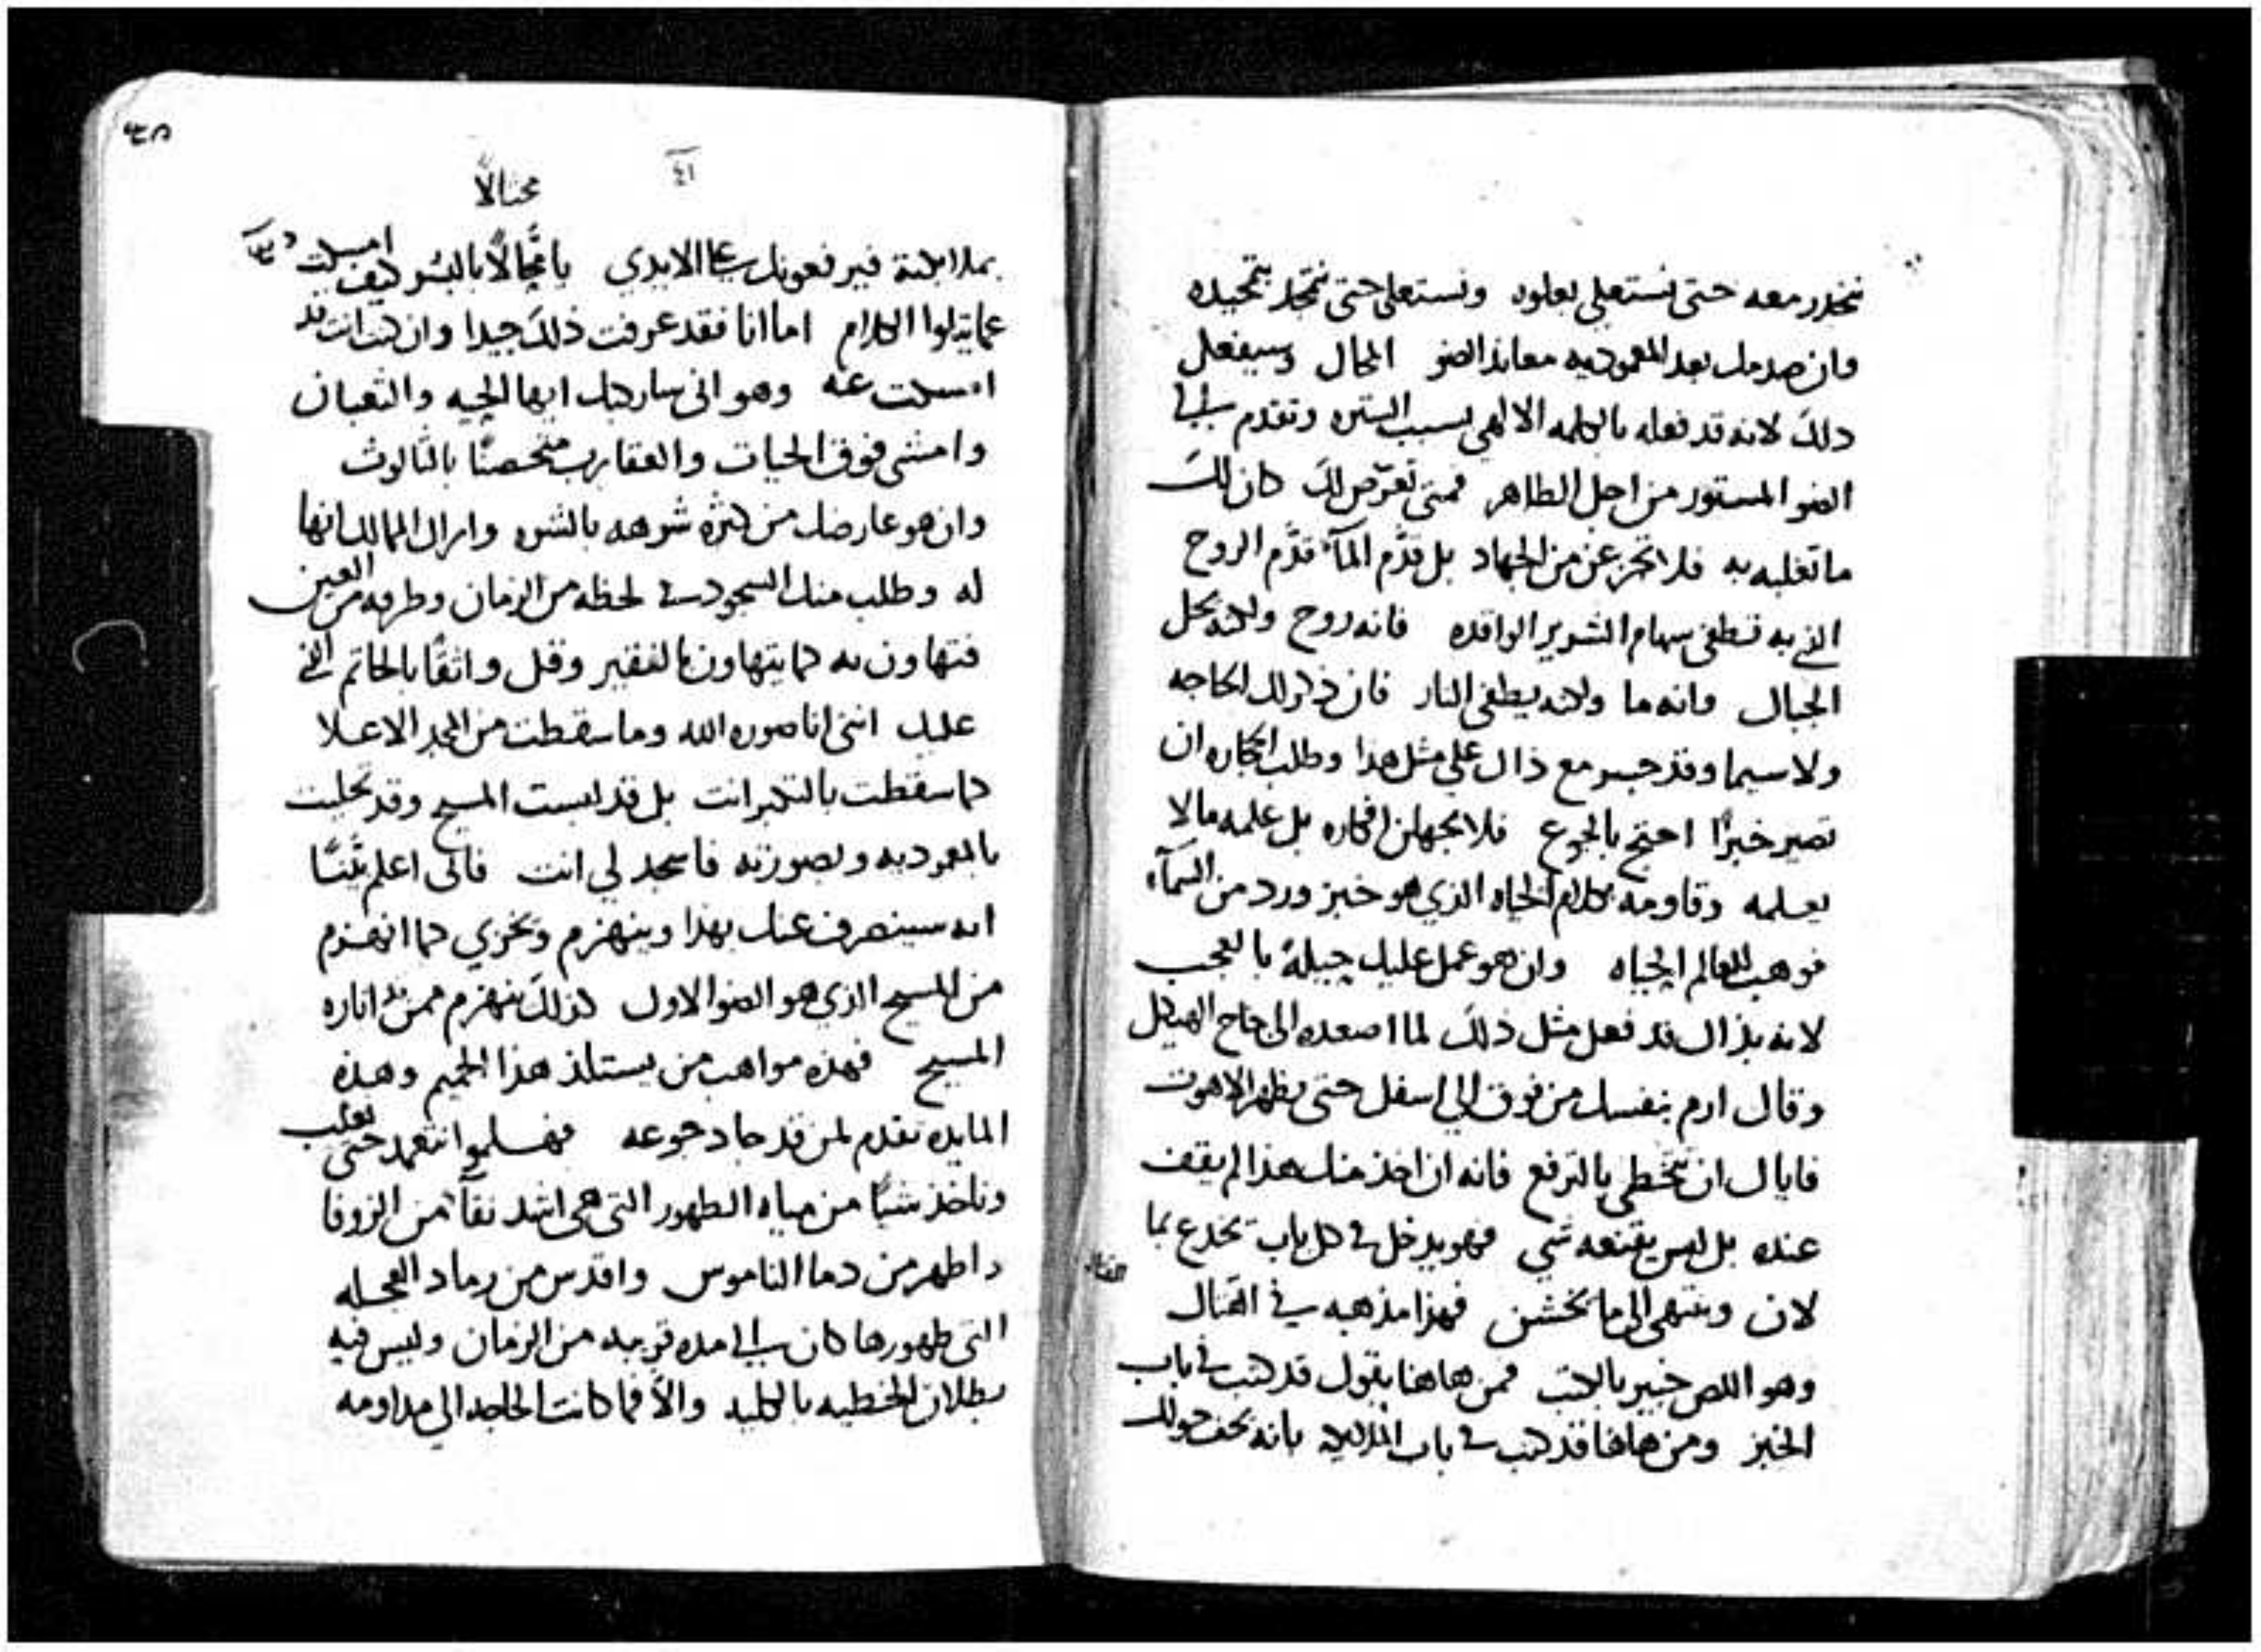 ننحدر معه حتى نستعلي بعلوه ونستعلي حتى نتمجد بتمجيده
وان صدمك بعد المعموديه معاند الضو المحال وسيفعل
ذلك لانه قد فعله بالكلمه الالهي بسبب الستره وتقدم الى
الضو المستور من اجل الظاهر فمتى تعرّض لك كان لك
ما تغلبه به فلا تجزعن من الجهاد بل قدّم المآء قدّم الروح
الذي به تنطفي سهام الشرير الواقده فانه روح ولكنه يحل
الجبال وانه ما ولكنه يطفي النار فان ذكر لك الحاجه
ولا سيما وقد جسر مع ذاك على مثل هذا وطلب الحجاره ان
تصير خبزًا احتج بالجوع فلا تجهلن افكاره بل علمه مالا
يعلمه وقاومه بكلام الحياه الذي هو خبز ورد من السمآء
فوهب للعالم الحياه وان هو عمل عليك حيلة بالعجب
لانه بذاك قد فعل مثل ذلك لما اصعده الى جناح الهيكل
وقال ارم بنفسك من فوق الى اسفل حتى يظهر الاهوت
فاياك ان تتخطى بالترفع فانه ان اخذ منك هذا لم يقف
عنده بل ليس يقنعه شي فهو يدخل في كل باب يخدع بما
لان وينتهي الى ما يخشن فهذا مذهبه في القتال
وهو اللص خبير بالكتب فمن هاهنا يقول قد كتب في باب
الخبز ومن هاهنا قد كتب في باب الملايكه بانه يحف حولك
٤١
محتالاً
بملايكته فيرفعونك على الايدي يا محتالاً بالشر كيف امسكت
عما يتلوا الكلام اما انا فقد عرفت ذلك جيدا وان كنت انت قد
امسكت عنه وهو اني سادكك ايها الحيه والثعبان
وامشي فوق الحيات والعقارب متحصنًا بالثالوث
وان هو عارضك من كثره شرهه بالشره واراك الممالك انها
له وطلب منك السجود في لحظه من الزمان وطرفه من العين
فتهاون به كما يتهاون بالفقير وقل واثقًا بالخاتم الذي
عليك انني انا صوره الله وما سقطت من المجد الاعلا
كما سقطت بالتكبر انت بل قد لبست المسيح وقد تحليت
بالمعموديه وبصورته فاسجد لي انت فاني اعلم يقينًا
انه سينصرف عنك بهذا وينهزم ويخزي كما انهزم
من المسيح الذي هو الضو الاول كذلك ينهزم ممن قد اناره
المسيح فهذه مواهب من يستلذ هذا الحميم وهذه
المايده تقدم لمن قد جاد جوعه فهلموا نتعمد حتى نغلب
وناخذ شيًا من مياه الطهور التي هي اشد نقآء من الزوفا
واطهر من دما الناموس واقدس من رماد العجله
التي طهورها كان الى مده قريبه من الزمان وليس فيه
بطلان الخطيه بالكليه والاّ فما كانت الحاجه الى مداومه